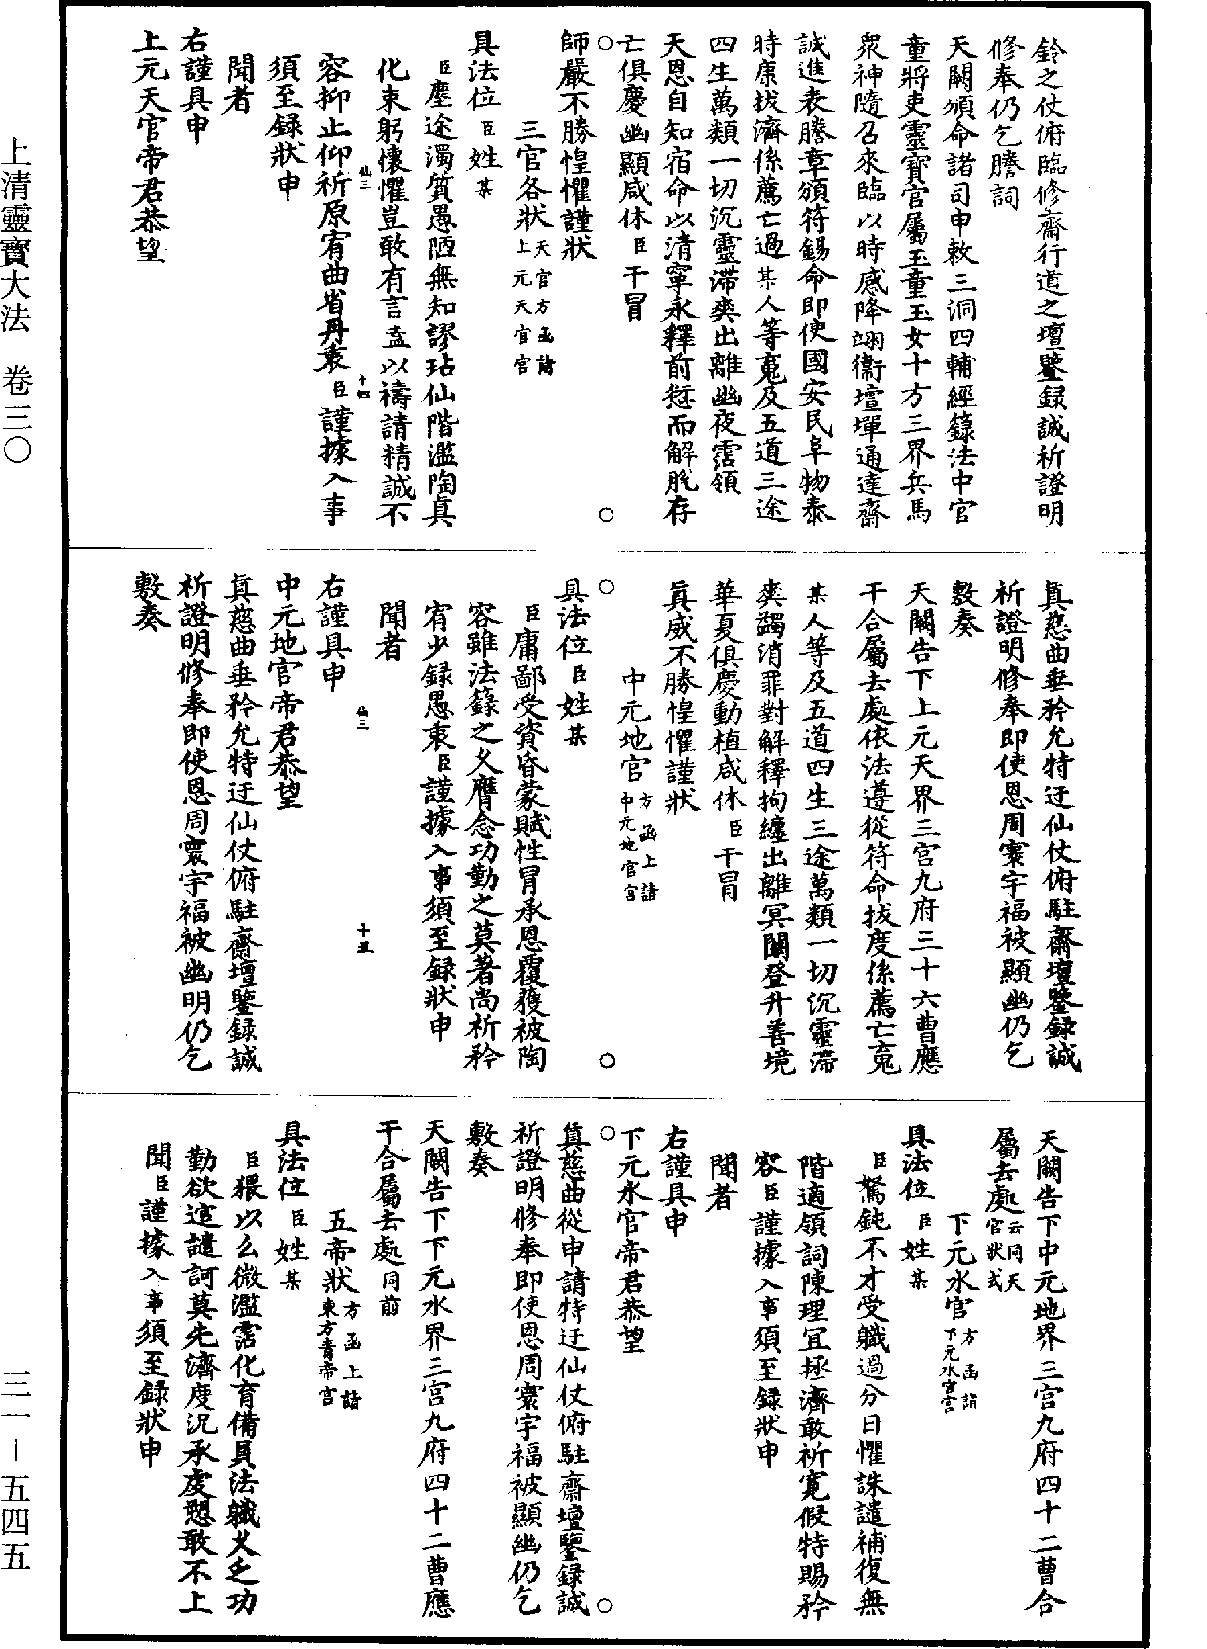 鈴之仗俯臨修齋行道之壇鑒録誠祈證明
修奉仍乞謄詞
天闕頒命諸司申敕三洞四輔經籙法中官
童將吏靈寶官屬玉童玉女十方三界兵馬
衆神隨召來臨以時感降翊衛壇墠通達齋
誠進表謄章頒符錫命即使國安民阜物泰
時康拔濟係薦亡過某人等䰟及五道三途
四生萬類一切沉靈滯爽出離幽夜霑領
天恩自知宿命以清寧永釋前愆而解脫存
亡俱慶幽顯咸休臣干冒
師嚴不勝惶懼謹狀
三官各狀天官方函諸
上元天官宮
具法位臣姓某
臣塵途濁質愚陋無知謬玷仙階濫陶眞
化束躬懷懼豈敢有言盍以禱請精誠不
容抑止仰祈原宥曲省丹衷臣謹據入事
須至録狀申
聞者
右謹具申
上元天官帝君恭望
仙三
十四
眞慈曲垂矜允特迂仙仗俯駐齋壇鑒録誠
祈證明修奉即使恩周寰宇福被顯幽仍乞
敷奏
天闕告下上元天界三宮九府三十六曹應
干合屬去處依法遵從符命拔度係薦亡䰟
某人等及五道四生三途萬類一切沉靈滯
爽蠲消罪對解釋拘纏出離冥關登升善境
華夏俱慶動植咸休臣干冒
眞威不勝惶懼謹狀
中元地官方函上諸
中元地官宮
具法位臣姓某
臣庸鄙受資昏蒙賦性冒承恩覆獲被陶
容雖法籙之乆膺念功勤之莫著尚祈矜
宥少録愚衷臣謹據入事須至録狀申
聞者
右謹具申
中元地官帝君恭望
眞慈曲垂矜允特迂仙仗俯駐齋壇鑒録誠
祈證明修奉即使恩周寰宇福被幽明仍乞
敷奏
仙三
十五
天闕告下中元地界三宮九府四十二曹合
屬去處云同天
官狀式
下元水官方函諸
下元水官宮
具法位臣姓某
臣駑鈍不才受軄過分日懼誅譴補復無
階適領詞陳理冝拯濟敢祈寛假特賜矜
容臣謹據入事須至録狀申
聞者
右謹具申
下元水官帝君恭望
眞慈曲從申請特迂仙仗俯駐齋壇鑒録誠
祈證明修奉即使恩周寰宇福被顯幽仍乞
敷奏
天闕告下下元水界三宮九府四十二曹應
干合屬去處同前
五帝狀方函上諸
東方青帝宮
具法位臣姓某
臣猥以么微濫霑化育備員法軄乆乏功
勤欲逭譴訶莫先濟度況承虔懇敢不上
聞臣謹據入事須至録狀申
上清靈寶大法 卷三〇
三一－五四五